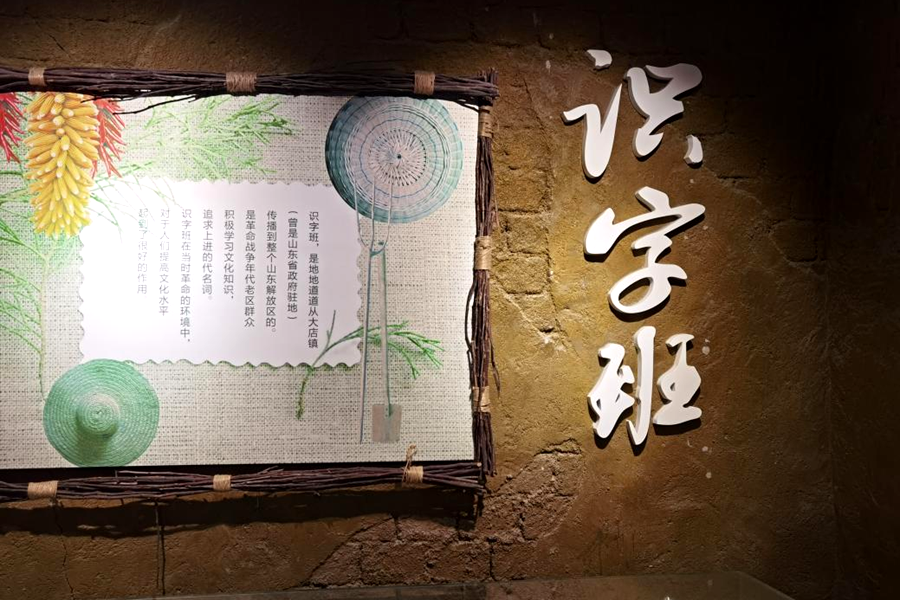 识字班
识字班，是地地道道从大店镇
（曾是山东省政府驻地）
传播到整个山东解放区的。
是革命战争年代老区群众
积极学习文化知识，
追求上进的代名词。
识字班在当时革命的环境中，
对于人们提高文化水平
起到了很好的作用